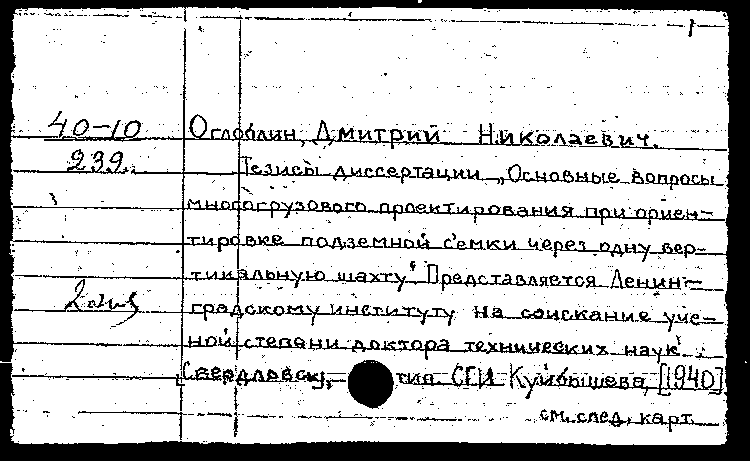 40-10
239
Оглоблин, Дмитрий Николаевич.
Тезисы диссертации „Основные вопросы
многогрузового проектирования при ориен-
тировке подземной с'емки через одну вер-
тикальную шахту“ Представляется Ленин-
2 экз
градскому институту на соискание уче-
ной степени доктора технических наук.
Свердловск, тип. СГИ Куйбышева, [1940]
см. след. карт.